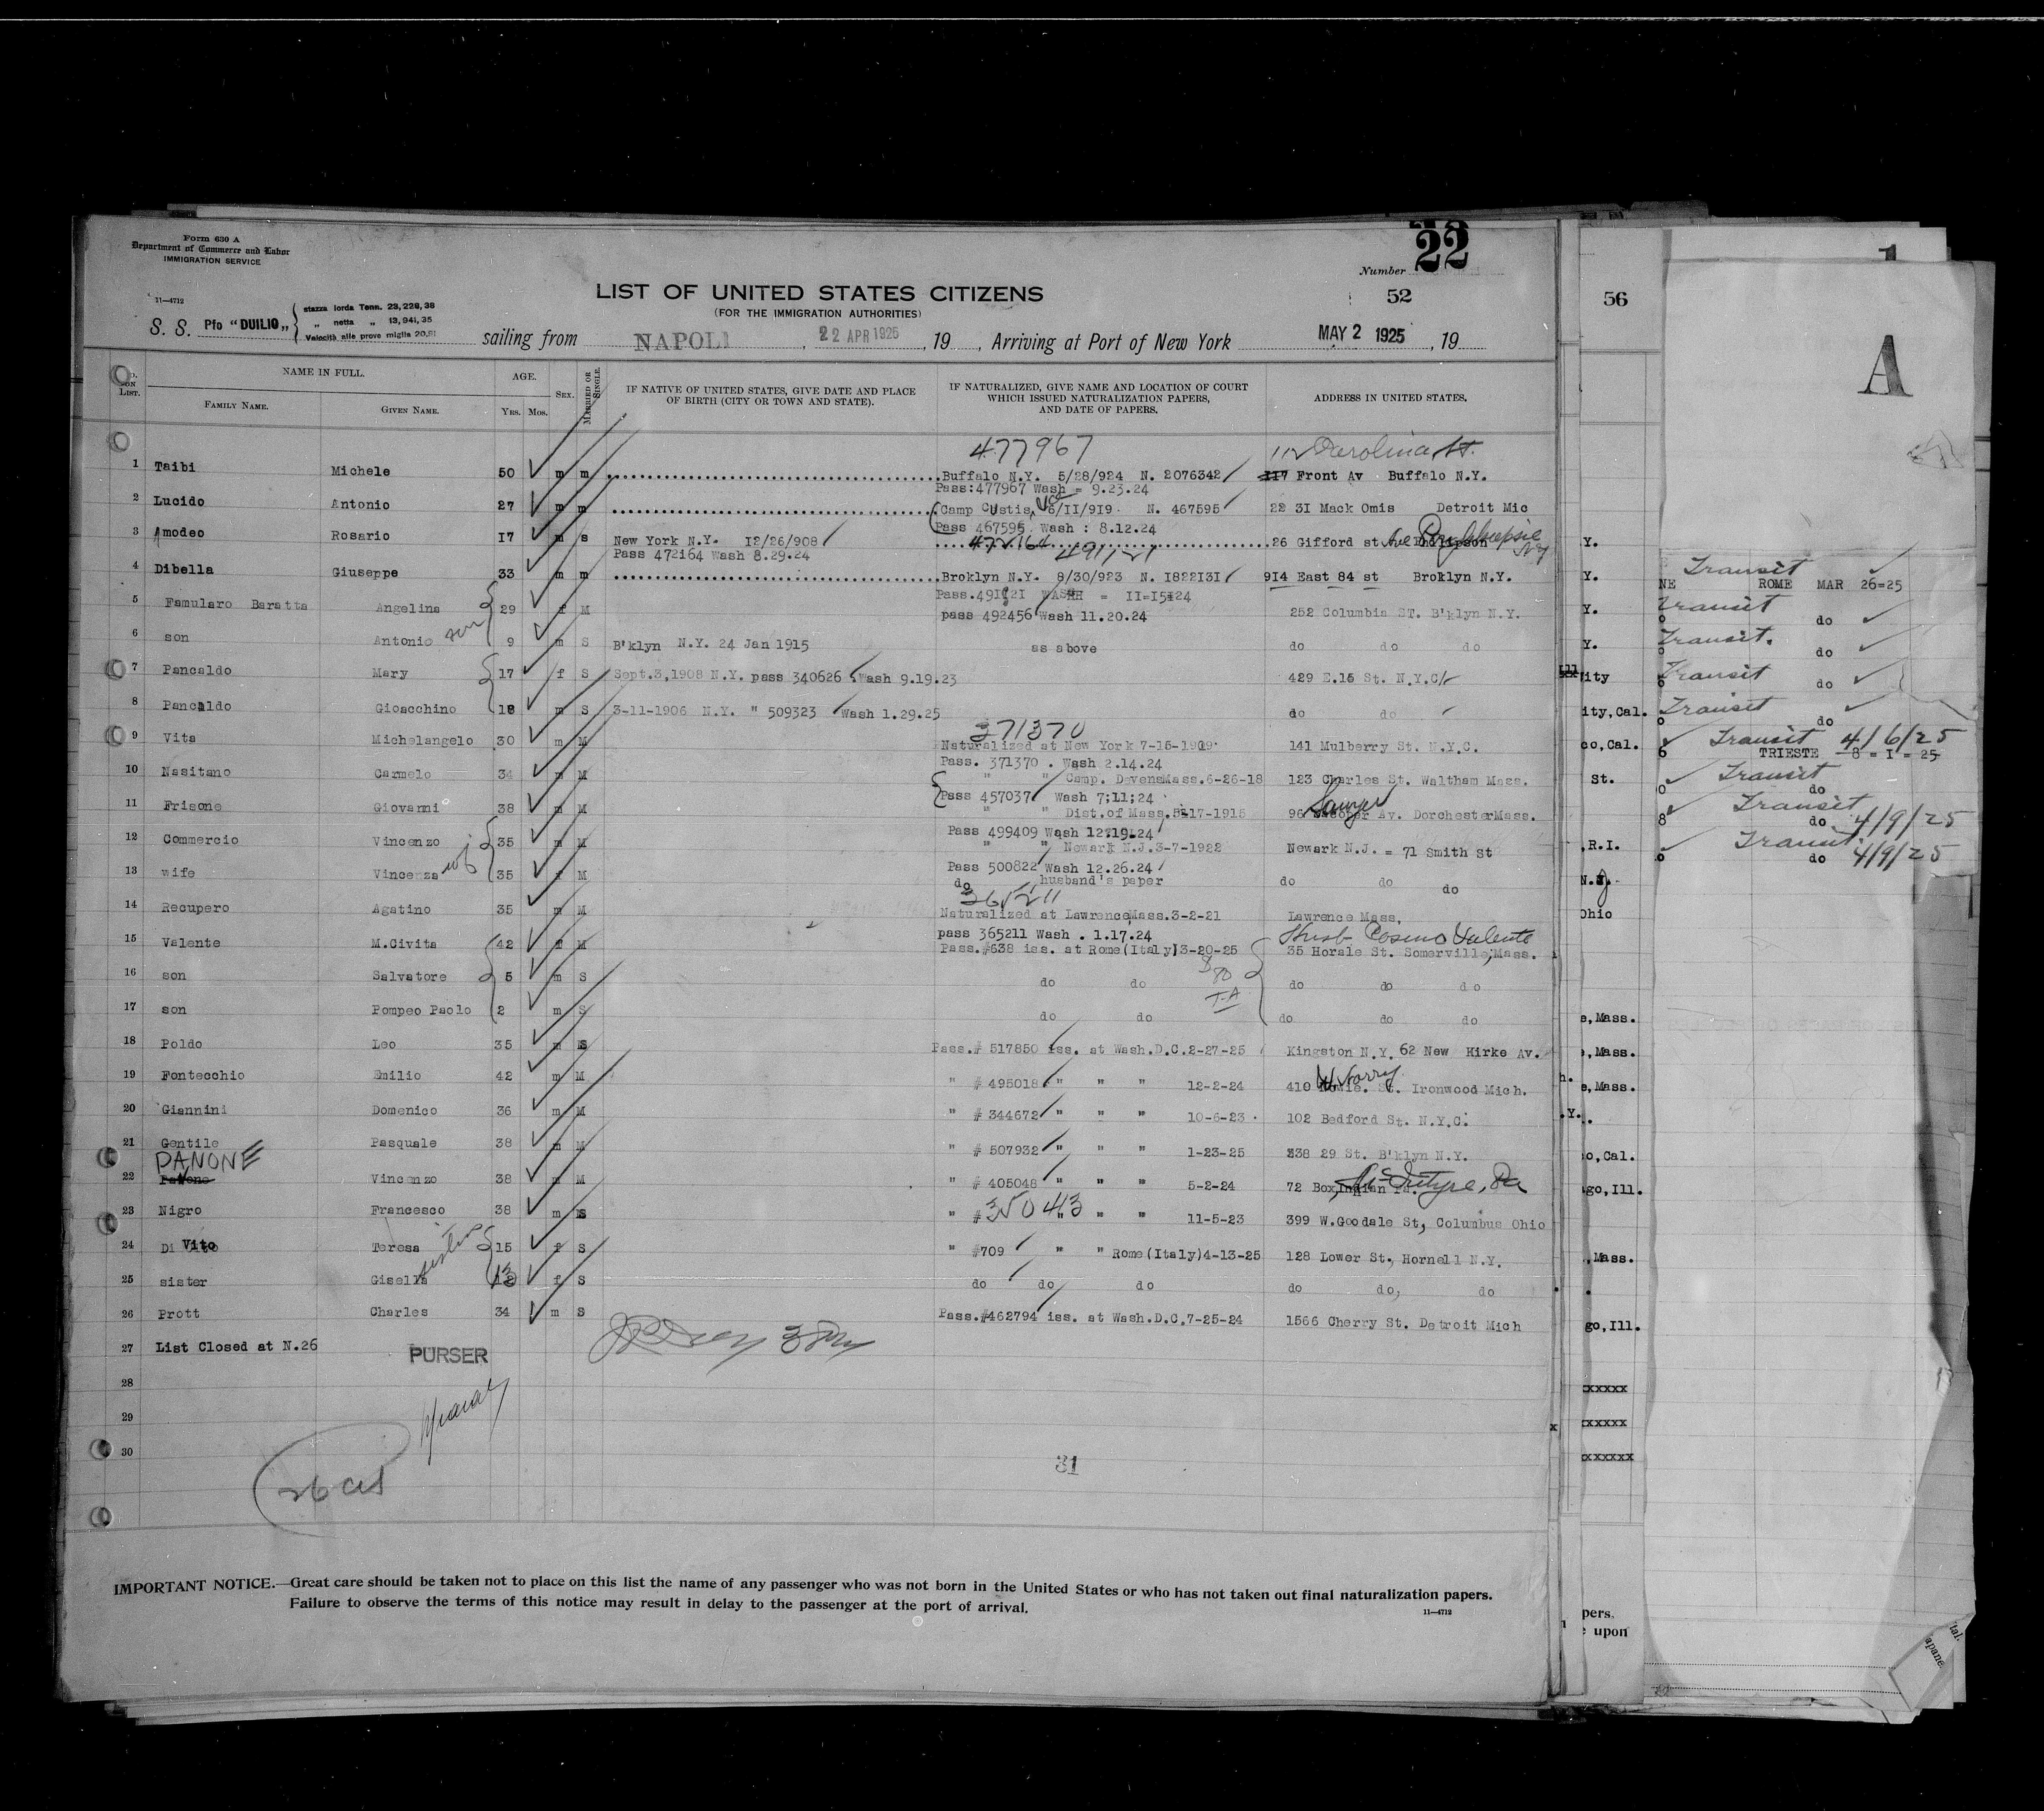 Form 630 A
Department of Commerce and Labor
IMMIGRATION SERVICE
22
Number
11—4712
LIST OF UNITED STATES CITIZENS
52
(FOR THE IMMIGRATION AUTHORITIES)
S. S. Pfo "DUILIO„ stazza lorda Tonn. 23,228,38
„ netta „ 13,941,35
Velocità alle prove miglia 20.81
sailing from NAPOLI, 22 APR 1925, 19 , Arriving at Port of New York MAY 2 1925, 19
No. on List. NAME IN FULL. AGE. Sex. Married or Single. IF NATIVE OF UNITED STATES, GIVE DATE AND PLACE OF BIRTH (CITY OR TOWN AND STATE). IF NATURALIZED, GIVE NAME AND LOCATION OF COURT WHICH ISSUED NATURALIZATION PAPERS, AND DATE OF PAPERS. ADDRESS IN UNITED STATES.
Family Name. Given Name. Yrs. Mos.
477967 112 Carolina St.
1 Taibi Michele 50 m m Buffalo N.Y. 5/28/924 N. 2076342 117 Front Av Buffalo N.Y.
Pass:477967 Wash = 9.23.24
2 Lucido Antonio 27 m m Camp Custis, 6/II/9I9 N. 467595 22 3I Mack Omis Detroit Mic
Pass 467595 Wash : 8.12.24
3 Amodeo Rosario I7 m s New York N.Y. I2/26/908 472164 26 Gifford st Poughkeepsie NY
Pass 472164 Wash 8.29.24 491121
4 Dibella Giuseppe 33 m m Broklyn N.Y. 8/30/923 N. I822I3I 9I4 East 84 st Broklyn N.Y.
Pass.491121 WASH = II=I5=24
5 Famularo Baratta Angelina 29 f M pass 492456 Wash 11.20.24 252 Columbia ST. B'klyn N.Y.
6 son Antonio son 9 m S B'klyn N.Y. 24 Jan 1915 as above do do do
7 Pancaldo Mary 17 f S Sept.3,1908 N.Y. pass 340626 Wash 9.19.23 429 E.15 St. N.Y.C.
8 Pancaldo Gioacchino 18 m S 3-11-1906 N.Y. " 509323 Wash 1.29.25 do do
371370
9 Vita Michelangelo 30 m M Naturalized at New York 7-15-1909 141 Mulberry St. N.Y.C.
Pass. 371370 . Wash 2.14.24
10 Nasitano Carmelo 34 m M " " Camp. Devens Mass.6-26-18 123 Charles St. Waltham Mass.
Pass 457037 Wash 7;11;24
11 Frisone Giovanni 38 m M " " Dist.of Mass. 5-17-1915 96 Sawyer Av. Dorchester Mass.
Pass 499409 Wash 12.19.24
12 Commercio Vincenzo 35 m M " " Newark N.J.3-7-1922 Newark N.J. = 71 Smith St
Pass 500822 Wash 12.26.24
13 wife Vincenza wf 35 f M do husband's paper do do do
365211
14 Recupero Agatino 35 m M Naturalized at Lawrence,Mass.3-2-21 Lawrence Mass.
pass 365211 Wash . 1.17.24 Husb Cosimo Valente
15 Valente M.Civita 42 f M Pass.#638 iss. at Rome(Italy)3-20-25 35 Horale St. Somerville,Mass.
16 son Salvatore 5 m S do do do do do
17 son Pompeo Paolo 2 m S do do do do do
18 Poldo Leo 35 m S Pass.# 517850 iss. at Wash.D.C.2-27-25 Kingston N.Y. 62 New Kirke Av.
19 Fontecchio Emilio 42 m M " # 495018 " " " 12-2-24 410 St. Ironwood Mich.
20 Giannini Domenico 36 m M " # 344672 " " " 10-6-23 102 Bedford St. N.Y.C.
21 Gentile Pasquale 38 m M " # 507932 " " " 1-23-25 238 29 St. B'klyn N.Y.
PANONE
22 Vincenzo 38 m M " # 405048 " " " 5-2-24 72 Box McIntyre, Pa
23 Nigro Francesco 38 m S " # 350413 " " " 11-5-23 399 W.Goodale St, Columbus Ohio
24 Di Vito Teresa 15 f S " #709 " " Rome(Italy)4-13-25 128 Lower St, Hornell N.Y.
25 sister Gisella sister 13 f S do do do do do, do
26 Prott Charles 34 m S Pass.#462794 iss. at Wash.D.C.7-25-24 1566 Cherry St. Detroit Mich
27 List Closed at N.26 PURSER
28
29
30
26 cit
31
IMPORTANT NOTICE.—Great care should be taken not to place on this list the name of any passenger who was not born in the United States or who has not taken out final naturalization papers.
Failure to observe the terms of this notice may result in delay to the passenger at the port of arrival.
11—4712
56
Y.
Y.
Y.
Y.
ity
ity,Cal.
co,Cal.
St.
,R.I.
Ohio
e,Mass.
,Mass.
e,Mass.
.Y.
o,Cal.
go,Ill.
,Mass.
go,Ill.
xxxxx
xxxxx
xxxxxx
pers.
upon
A
Transit
NE ROME MAR 26=25
Transit
do
Transit.
do
Transit
do
Transit
do
Transit 4/6/25
TRIESTE 8 = I = 25
Transit
do
Transit
do 4/9/25
Transit
do 4/9/25